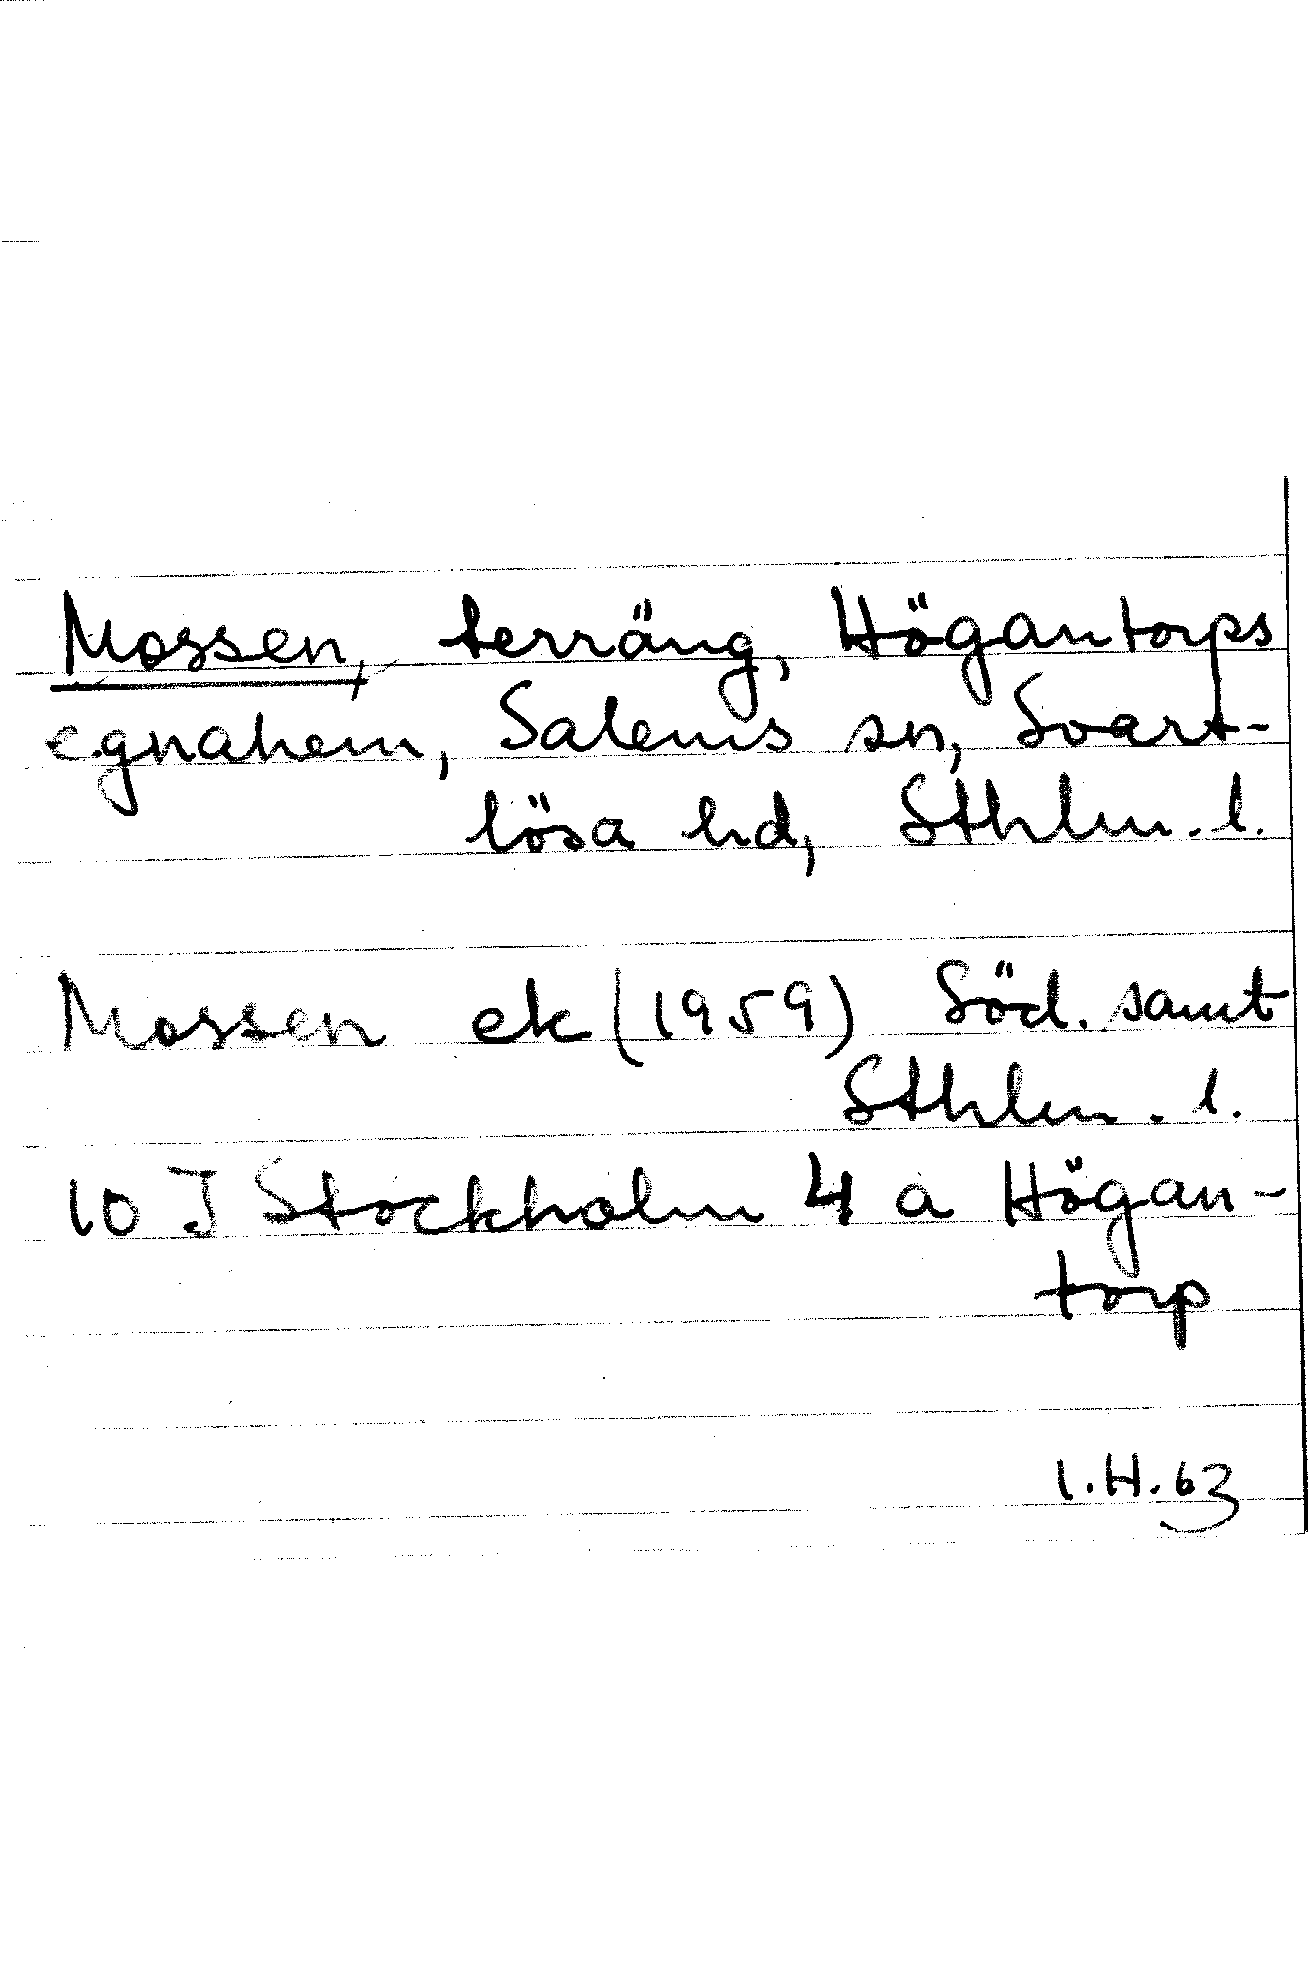 Mossen, terräng, Högantorps
egnahem, Salems sn, Svart-
lösa hd, Sthlm. l.
Mossen ek (1959) Söd. samt
Sthlm. l.
10 I Stockholm 4 a Högan-
torp
I.H. 63